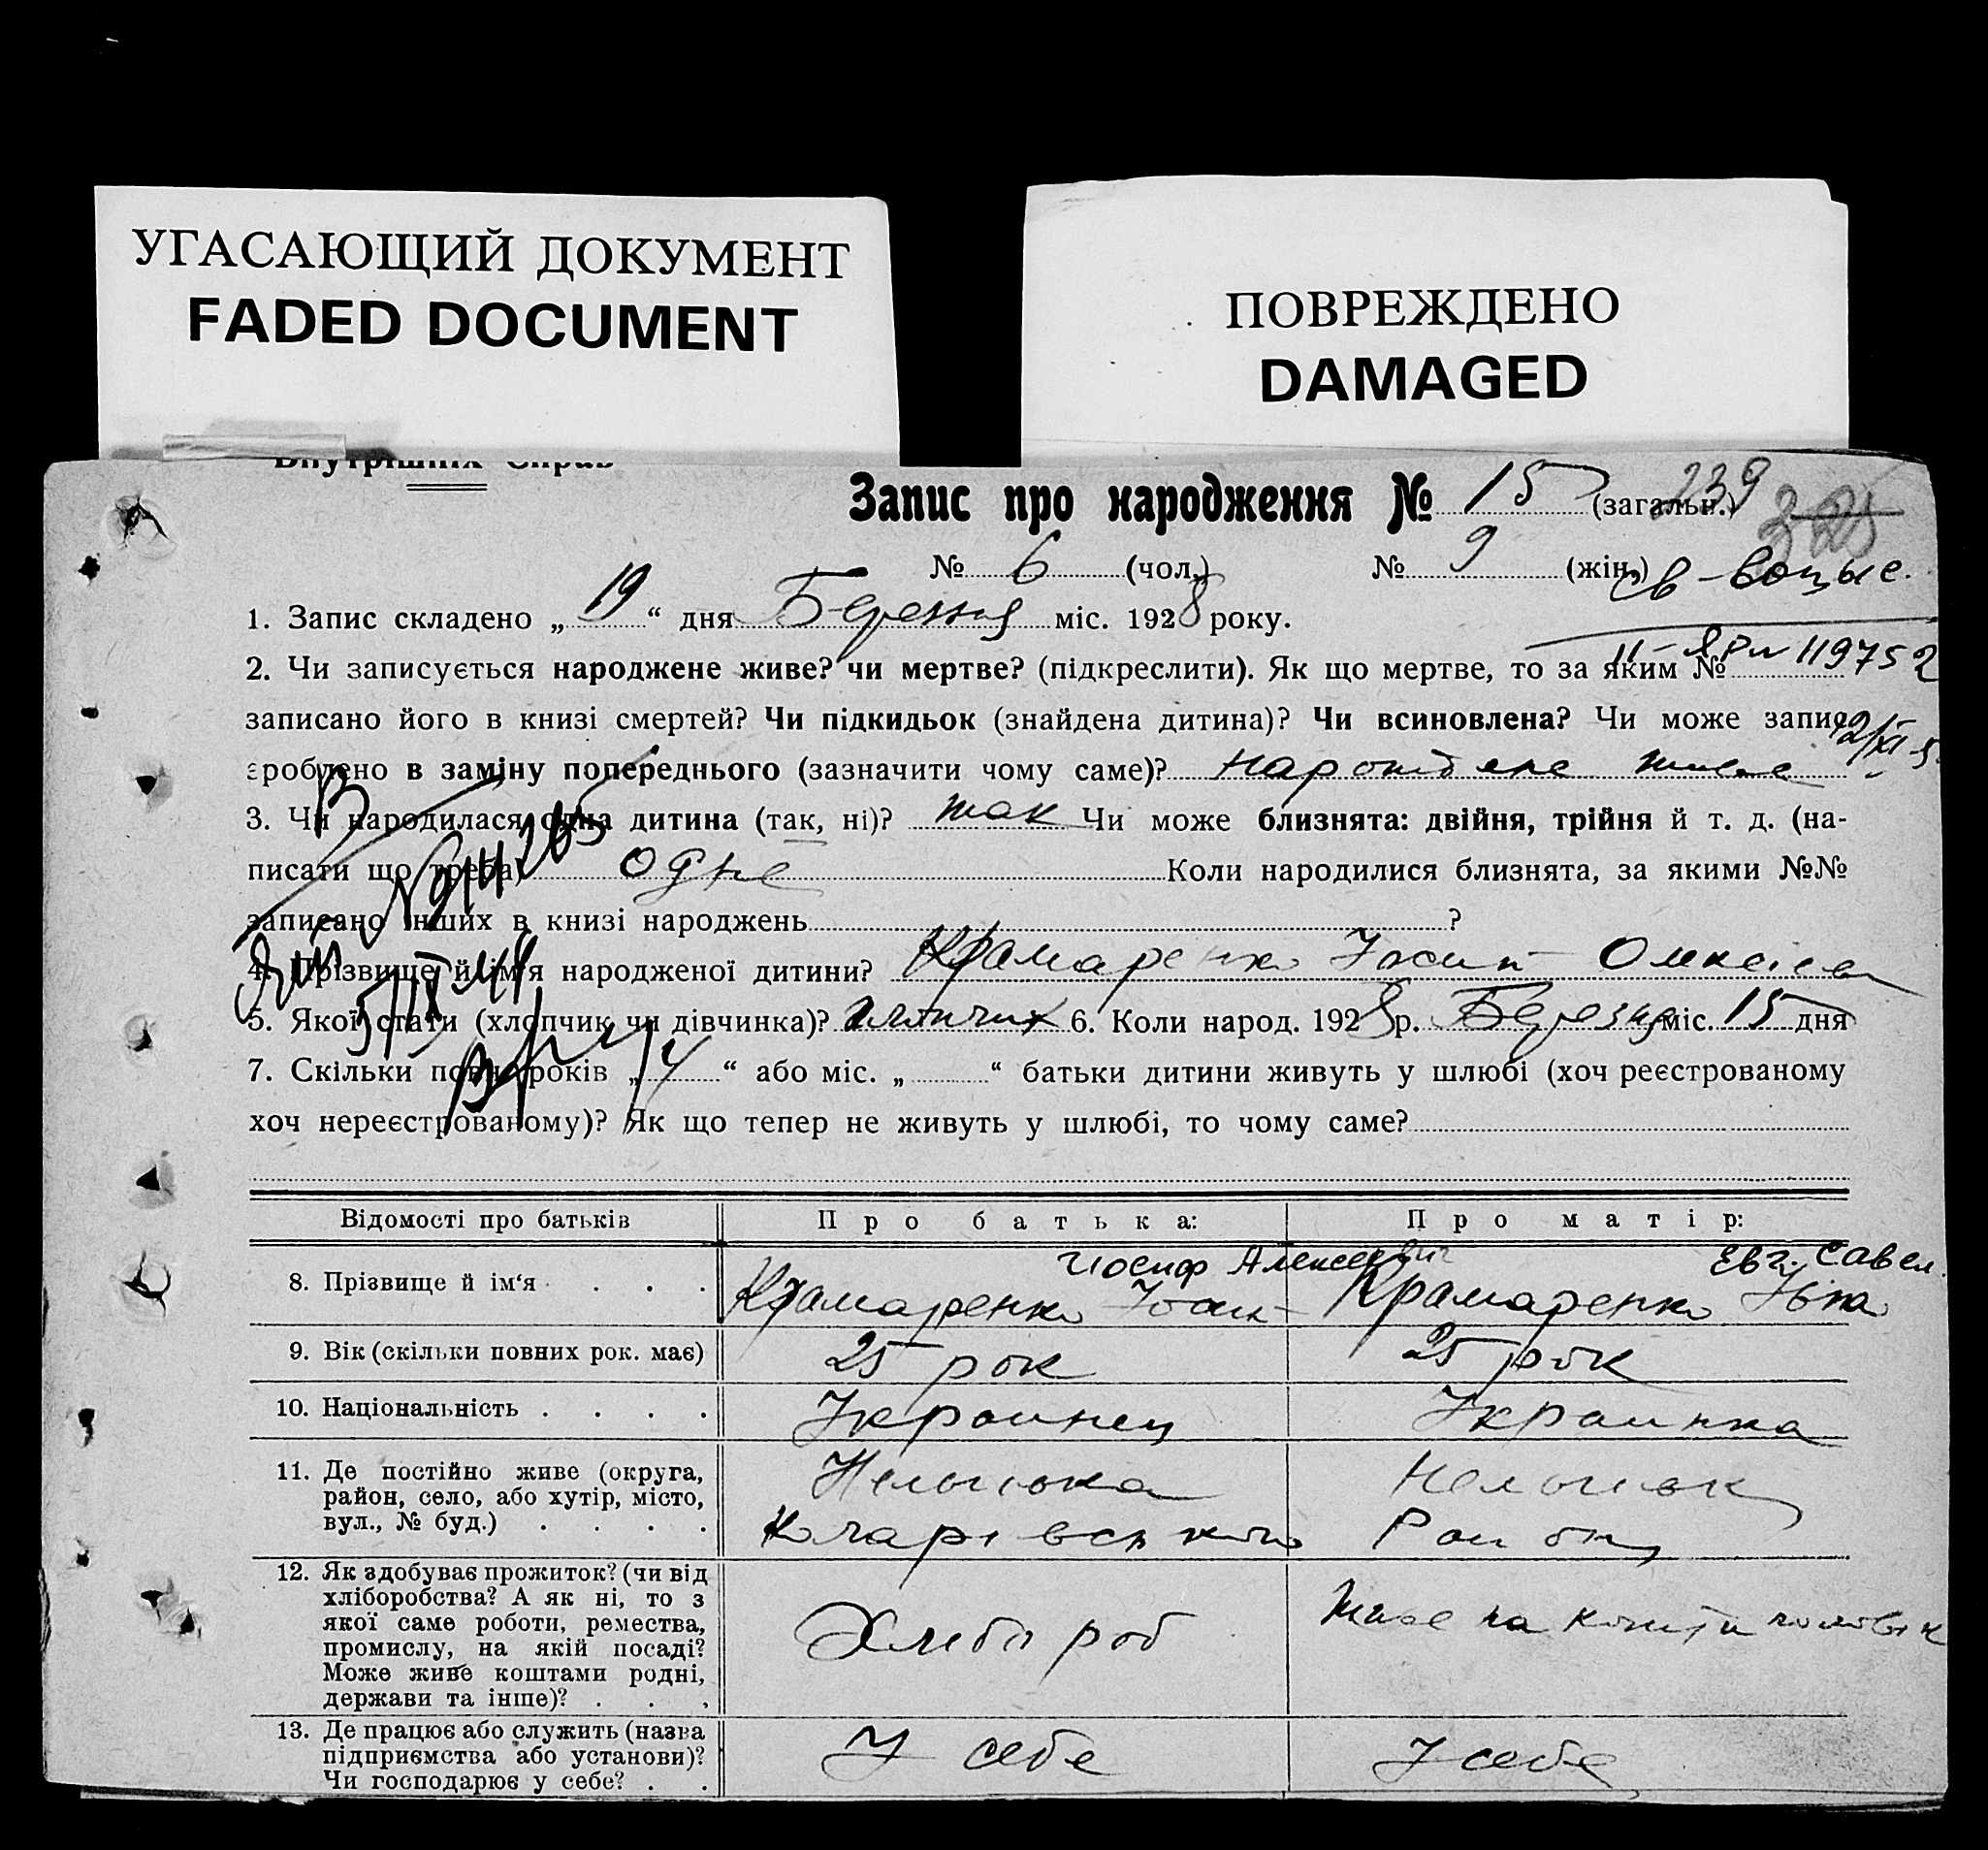 УГАСАЮЩИЙ ДОКУМЕНТ
FADED DOCUMENT
ПОВРЕЖДЕНО
DAMAGED
Внутрішніх Справ
Запис про народження № 15 (загальн.) 239
№ 6 (чол.) № 9 (жін.)
1. Запис складено „19“ дня Березня міс. 1928 року.
2. Чи записується народжене живе? чи мертве? (підкреслити). Як що мертве, то за яким № 119752
записано його в книзі смертей? Чи підкидьок (знайдена дитина)? Чи всиновлена? Чи може запис
зроблено в заміну попереднього (зазначити чому саме)? народжене живе
3. Чи народилася одна дитина (так, ні)? так Чи може близнята: двійня, трійня й т. д. (на-
писати що треба) одне Коли народилися близнята, за якими №№
записано інших в книзі народжень ?
4. Прізвище й ім'я народженої дитини? Крамаренко Йосип Олексіев
5. Якої стати (хлопчик чи дівчинка)? хлопчик 6. Коли народ. 1928 р. Березня міс. 15 дня
7. Скільки повних років „4“ або міс. „ “ батьки дитини живуть у шлюбі (хоч реєстрованому
хоч нереєстрованому)? Як що тепер не живуть у шлюбі, то чому саме?
Відомості про батьків Про батька: Про матір:
Иосиф Алексеевич Евг. Савел.
8. Прізвище й ім‘я . . . Крамаренко Йосип Крамаренко
9. Вік (скільки повних рок. має) 25 рок 25 рок
10. Національність . . . . Украинец Украинка
11. Де постійно живе (округа,
район, село, або хутір, місто,
вул., № буд.) . . . .
12. Як здобуває прожиток? (чи від
хліборобства? А як ні, то з
якої саме роботи, ремества,
промислу, на якій посаді?
Може живе коштами родні,
держави та інше)? . . .
Хлібороб
живе на кошти чоловік
13. Де працює або служить (назва
підприємства або установи)?
Чи господарює у себе? . .
У себе У себе